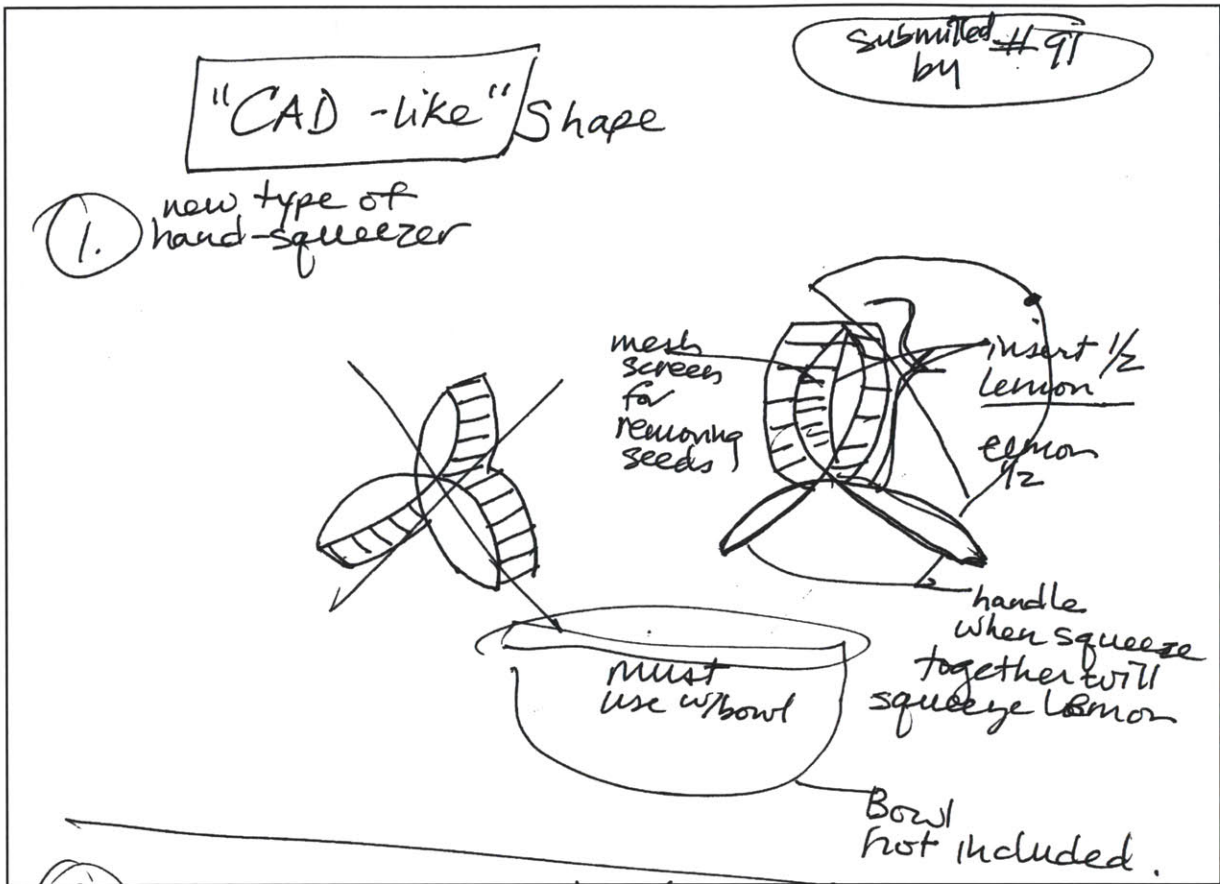 submitted #91
by
"CAD-like" Shape
1. new type of
hand-squeezer
mesh
screen
for
removing
seeds
insert 1/2
lemon
1/2
handle
when squeeze
together will
squeeze lemon
must
use w/bowl
Bowl
not included.